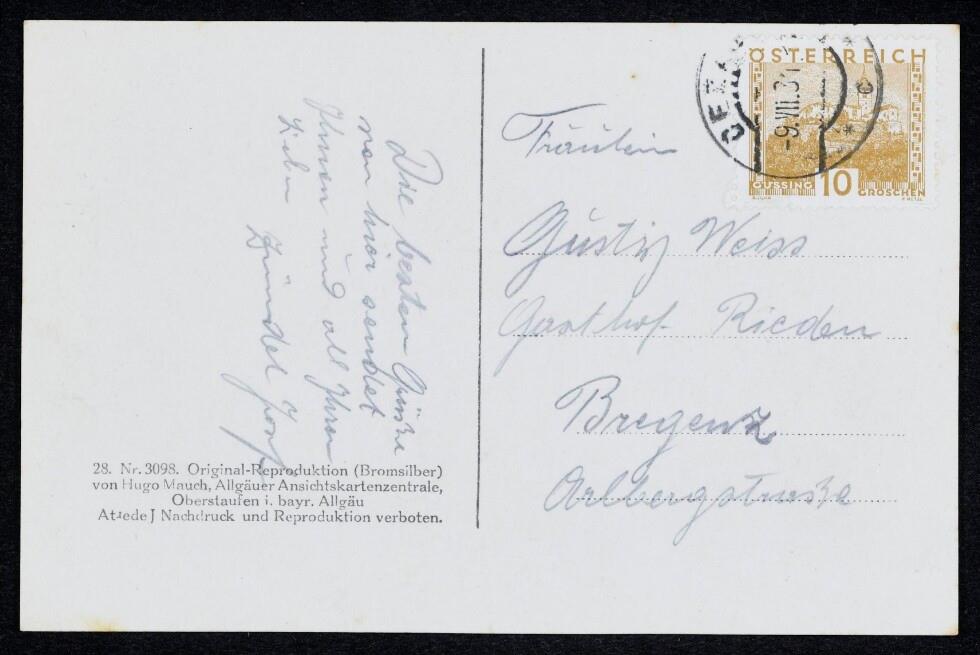 Die besten Grüße
von hier sendet
Ihnen und all Ihren
Lieben
Zündel Josef
28. Nr. 3098. Original-Reproduktion (Bromsilber)
von Hugo Mauch, Allgäuer Ansichtskartenzentrale,
Oberstaufen i. bayr. Allgäu
Nachdruck und Reproduktion verboten.
ÖSTERREICH
GÜSSING 10 GROSCHEN
-9.VII.31
Fräulein
Gusti Weiss
Gasthof Rieden
Bregenz
Arlbergstraße